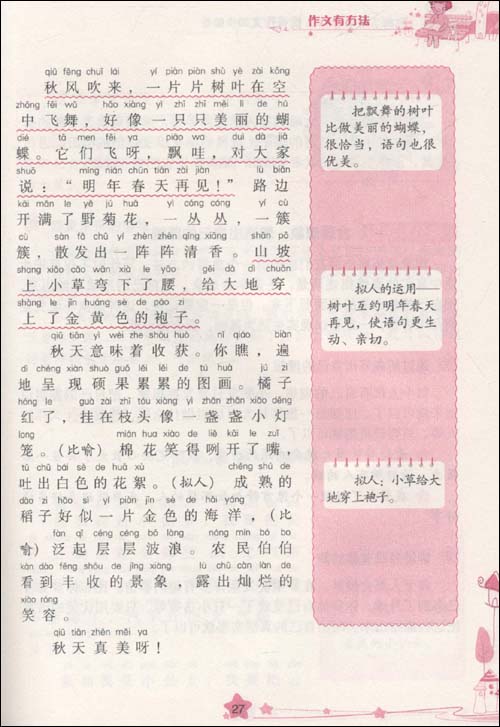 作文有方法
qiū fēng chuī lái yí piàn piàn shù yè zài kōng
秋风吹来，一片片树叶在空
zhōng fēi wǔ hǎo xiàng yì zhī zhī měi lì de hú
中飞舞，好像一只只美丽的蝴
dié tā men fēi ya piāo wa duì dà jiā
蝶。它们飞呀，飘哇，对大家
shuō míng nián chūn tiān zài jiàn lù biān
说：“明年春天再见！”路边
kāi mǎn le yě jú huā yì cóng cóng yí cù
开满了野菊花，一丛丛，一簇
cù sàn fā chū yí zhèn zhèn qīng xiāng shān pō
簇，散发出一阵阵清香。山坡
shang xiǎo cǎo wān xià le yāo gěi dà dì chuān
上小草弯下了腰，给大地穿
shàng le jīn huáng sè de páo zi
上了金黄色的袍子。
qiū tiān yì wèi zhe shōu huò nǐ qiáo biàn
秋天意味着收获。你瞧，遍
dì chéng xiàn shuò guǒ lěi lěi de tú huà jú zi
地呈现硕果累累的图画。橘子
hóng le guà zài zhī tóu xiàng yì zhǎn zhǎn xiǎo dēng
红了，挂在枝头像一盏盏小灯
long mián huā xiào de liě kāi le zuǐ
笼。（比喻）棉花笑得咧开了嘴，
tǔ chū bái sè de huā xù chéng shú de
吐出白色的花絮。（拟人）成熟的
dào zi hǎo sì yí piàn jīn sè de hǎi yáng
稻子好似一片金色的海洋，（比
fàn qǐ céng céng bō làng nóng mín bó bo
喻）泛起层层波浪。农民伯伯
kàn dào fēng shōu de jǐng xiàng lù chū càn làn de
看到丰收的景象，露出灿烂的
xiào róng
笑容。
qiū tiān zhēn měi ya
秋天真美呀！
把飘舞的树叶
比做美丽的蝴蝶，
很恰当，语句也很
优美。
拟人的运用——
树叶互约明年春天
再见，使语句更生
动、亲切。
拟人：小草给大
地穿上袍子。
27